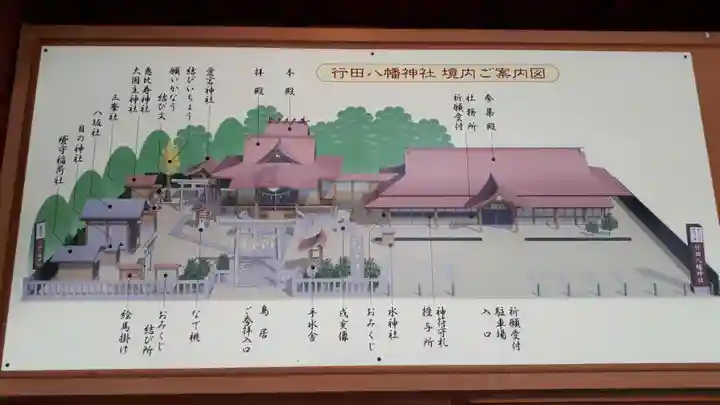 行田八幡神社 境内ご案内図
参集殿
社務所
祈願受付
本殿
拝殿
愛宕神社
結びいちょう
願いかなう
結び文
恵比寿神社
大国主神社
三峯社
八坂社
目の神社
瘡守稲荷社
祈願受付
駐車場
入口
神付守札
授与所
水神社
おみくじ
戌亥像
手水舎
鳥居
ご参拝入口
なで桃
おみくじ
結び所
絵馬掛け
行田八幡神社